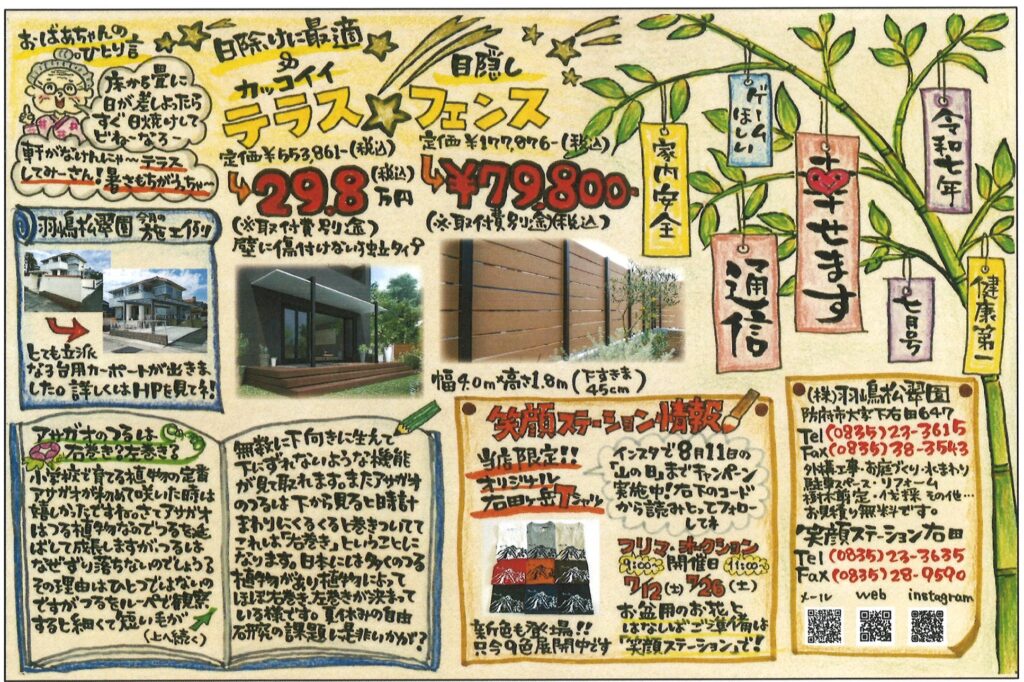 おばあちゃんの
ひとり言
床から畳に
日が差しよったら
すぐ日焼けして
軒がなけんにゃ～テラス
してみーさん!暑さもちがうっちゃ～
日除けに最適
の
カッコイイ
テラス☆フェンス
目隠し
定価¥553,861-(税込)
29.8万円(税込)
(※取付費別途)
壁に傷付けない独立タイプ
定価¥177,876-(税込)
¥79,800-
(※取付費別途)(税込)
幅4.0m×高さ1.8m(下すきま45cm)
羽嶋松翠園 今月の施工例!!
とても立派
なる台用カーポートが出きま
した。詳しくはHPを見てネ!
アサガオのつるは
右巻き?左巻き?
小学校で育てる植物の定番
アサガオが初めて咲いた時は
嬉しかったですね。さてアサガオ
はつる植物なのでつるを延
ばして成長しますが、つるは
なぜずり落ちないのでしょう?
その理由はひとつではないの
ですがつるをルーペで観察
すると細くて短い毛が
(上へ続く)
無数に下向きに生えて
下にずれないような機能
が見て取れます。またアサガオ
のつるは下から見ると時計
まわりにくるくると巻きついてて
これは「右巻き」ということに
なります。日本には多くのつる
植物があり植物によって
ほぼ右巻き、左巻きが決まって
いる様です。夏休みの自由
研究の課題に是非いかが?
笑顔ステーション情報
当店限定!!
オリジナル
右田ヶ岳Tシャツ
新色も登場!!
只今9色展開中です
インスタで8月11日の
「山の日」までキャンペーン
実施中!右下のコード
から読みとってフォロー
してネ
フリマ・オークション
9:00～ 開催日 11:00～
7/12(土) 7/26(土)
お盆用のお花と
はなしばご準備は
「笑顔ステーション」で!
家内安全
ゲームほしい
幸せます
通信
令和七年
七月号
健康第一
(株)羽嶋松翠園
防府市大字下右田647
Tel (0835)23-3615
Fax (0835)38-3543
外構工事・お庭づくり・水まわり
駐車スペース・リフォーム
樹木剪定・伐採 その他…
お見積り無料です。
笑顔ステーション右田
Tel (0835)23-3635
Fax (0835)28-9590
メール web instagram